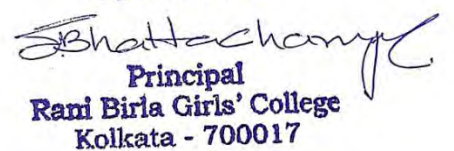 SBhattacharyya
Principal
Rani Birla Girls' College
Kolkata - 700017